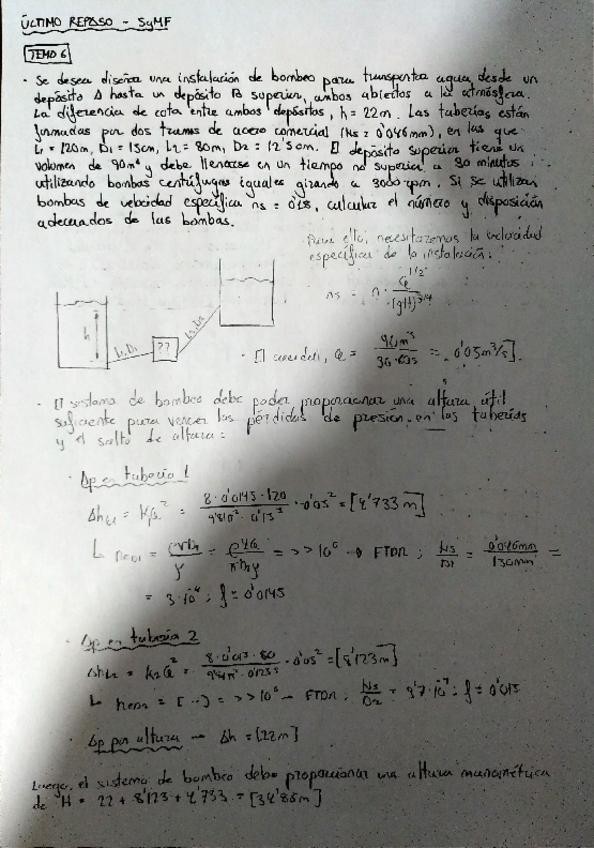 ÚLTIMO REPASO - SyMF
TEMA 6
· Se desea diseñar una instalación de bombeo para transportar agua desde un
depósito A hasta un depósito B superior, ambos abiertos a la atmósfera.
La diferencia de cota entre ambos depósitos, h = 22m. Las tuberías están
formadas por dos tramos de acero comercial (Ks = 0'046mm), en las que
L1 = 120m, D1 = 15cm, L2 = 80m, D2 = 12'5cm. El depósito superior tiene un
volumen de 90m³ y debe llenarse en un tiempo no superior a 30 minutos
utilizando bombas centrífugas iguales girando a 3000 rpm. Si se utilizan
bombas de velocidad específica ns = 0'18, calcular el número y disposición
adecuados de las bombas.
Para ello, necesitaremos la velocidad
específica de la instalación:
ns = n · Q^1/2 / (gH)^3/4
h
L1, D1
??
L2, D2
· El caudal, Q = 90m³ / 30·60s = 0'05m³/s].
· El sistema de bombeo debe poder proporcionar una altura útil
suficiente para vencer las pérdidas de presión en las tuberías
y el salto de altura:
· Δp en tubería 1
Δh = K1Q² = 8·0'0145·120 / · 0'05² = [4'733 m]
= >> 10⁶ → FTDR ; Ks/D1 = 0'046mm / =
= 3·10⁻⁴ ; f = 0'0145
· Δp en tubería 2
= K2Q² = 8·0'015·80 / · 0'05² = [8'123m]
= [...] = >> 10⁶ → FTDR ; Ks/D2 = 3'7·10⁻⁴ ; f = 0'015
· Δp por altura → Δh = [22m]
Luego, el sistema de bombeo debe proporcionar una altura manométrica
de H = 22 + 8'123 + 4'733 = [34'86m]